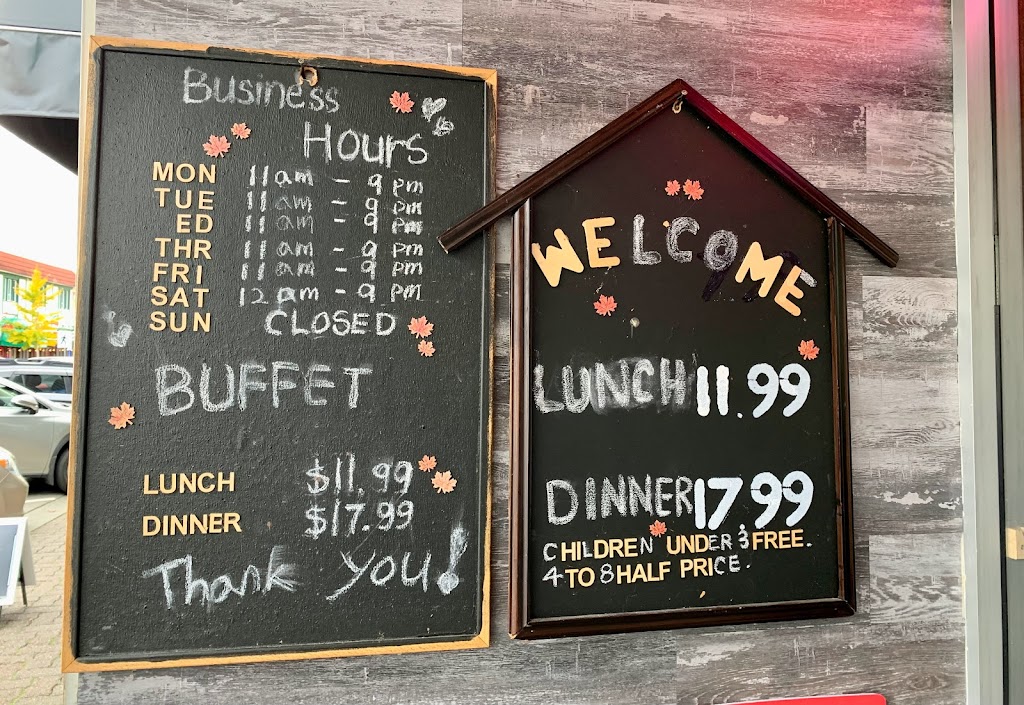 Business
Hours
MON 11am - 9 pm
TUE 11am - 9 pm
ED 11am - 9 pm
THR 11am - 9 pm
FRI 11am - 9 pm
SAT 12am - 9 pm
SUN CLOSED
BUFFET
LUNCH $11.99
DINNER $17.99
Thank you!
WELCOME
LUNCH 11.99
DINNER 17.99
CHILDREN UNDER 3 FREE.
4 TO 8 HALF PRICE.